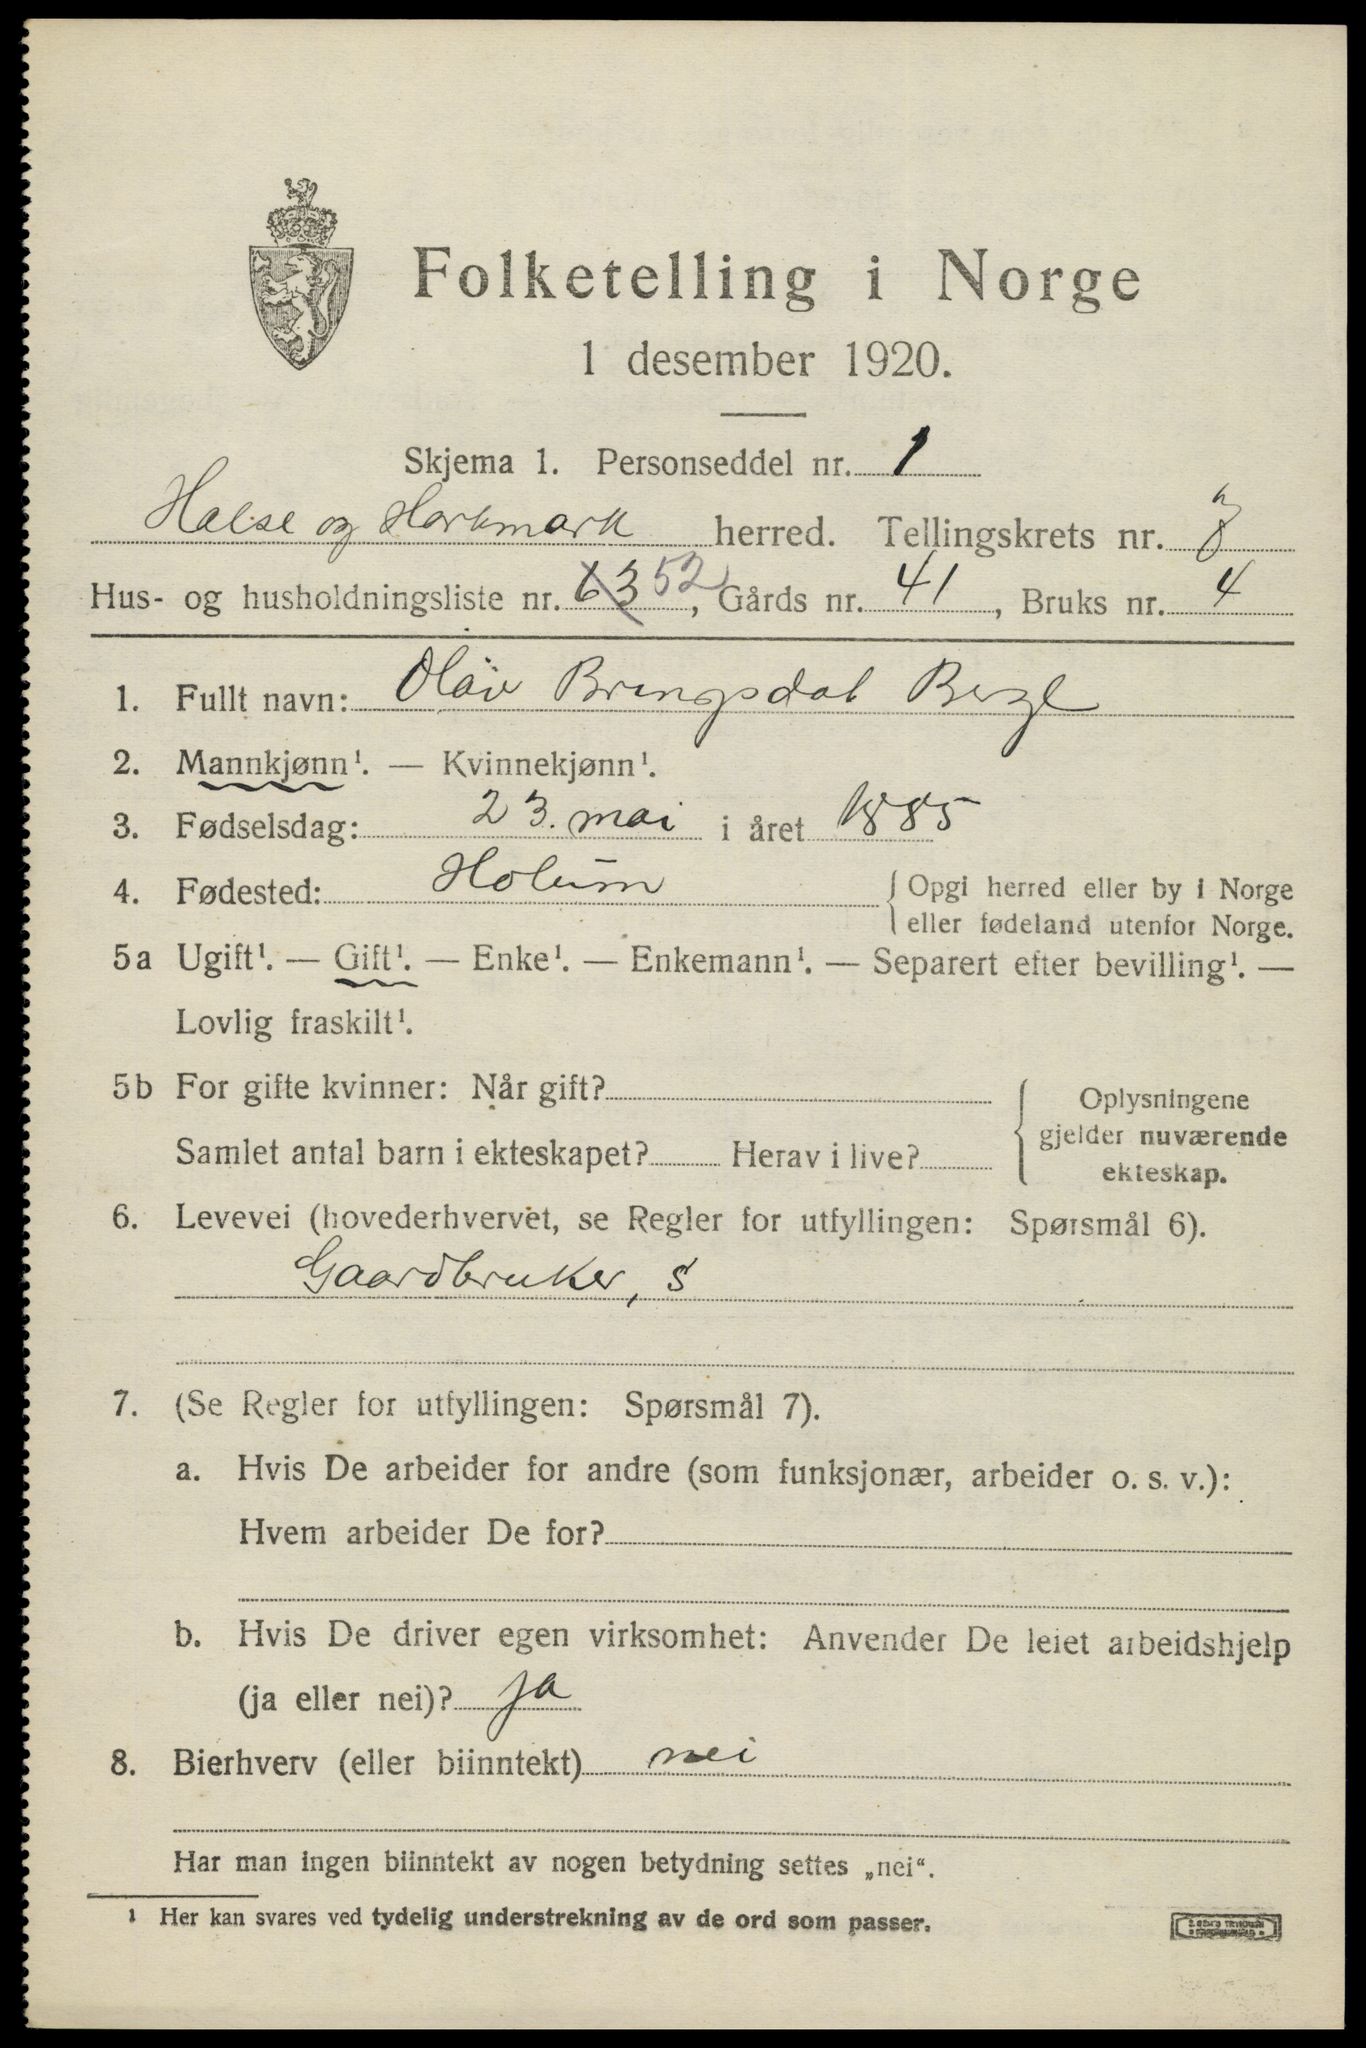 Folketelling i Norge
1 desember 1920.
Skjema 1. Personseddel nr. 1
Halse og Harkmark herred. Tellingskrets nr. 8
Hus- og husholdningsliste nr. 63 52, Gårds nr. 41, Bruks nr. 4
1. Fullt navn: Olav Bringsdal Berge
2. Mannkjønn¹. — Kvinnekjønn¹.
3. Fødselsdag: 23. mai i året 1885
4. Fødested: Holum {Opgi herred eller by i Norge
eller fødeland utenfor Norge.
5a Ugift¹. — Gift¹. — Enke¹. — Enkemann¹. — Separert efter bevilling¹. —
Lovlig fraskilt¹.
5b For gifte kvinner: Når gift?
Samlet antal barn i ekteskapet? Herav i live?
Oplysningene
gjelder nuværende
ekteskap.
6. Levevei (hovederhvervet, se Regler for utfyllingen: Spørsmål 6).
Gaardbruker, s
7. (Se Regler for utfyllingen: Spørsmål 7).
a. Hvis De arbeider for andre (som funksjonær, arbeider o. s. v.):
Hvem arbeider De for?
b. Hvis De driver egen virksomhet: Anvender De leiet arbeidshjelp
(ja eller nei)? ja
8. Bierhverv (eller biinntekt) nei
Har man ingen biinntekt av nogen betydning settes „nei“.
1 Her kan svares ved tydelig understrekning av de ord som passer.